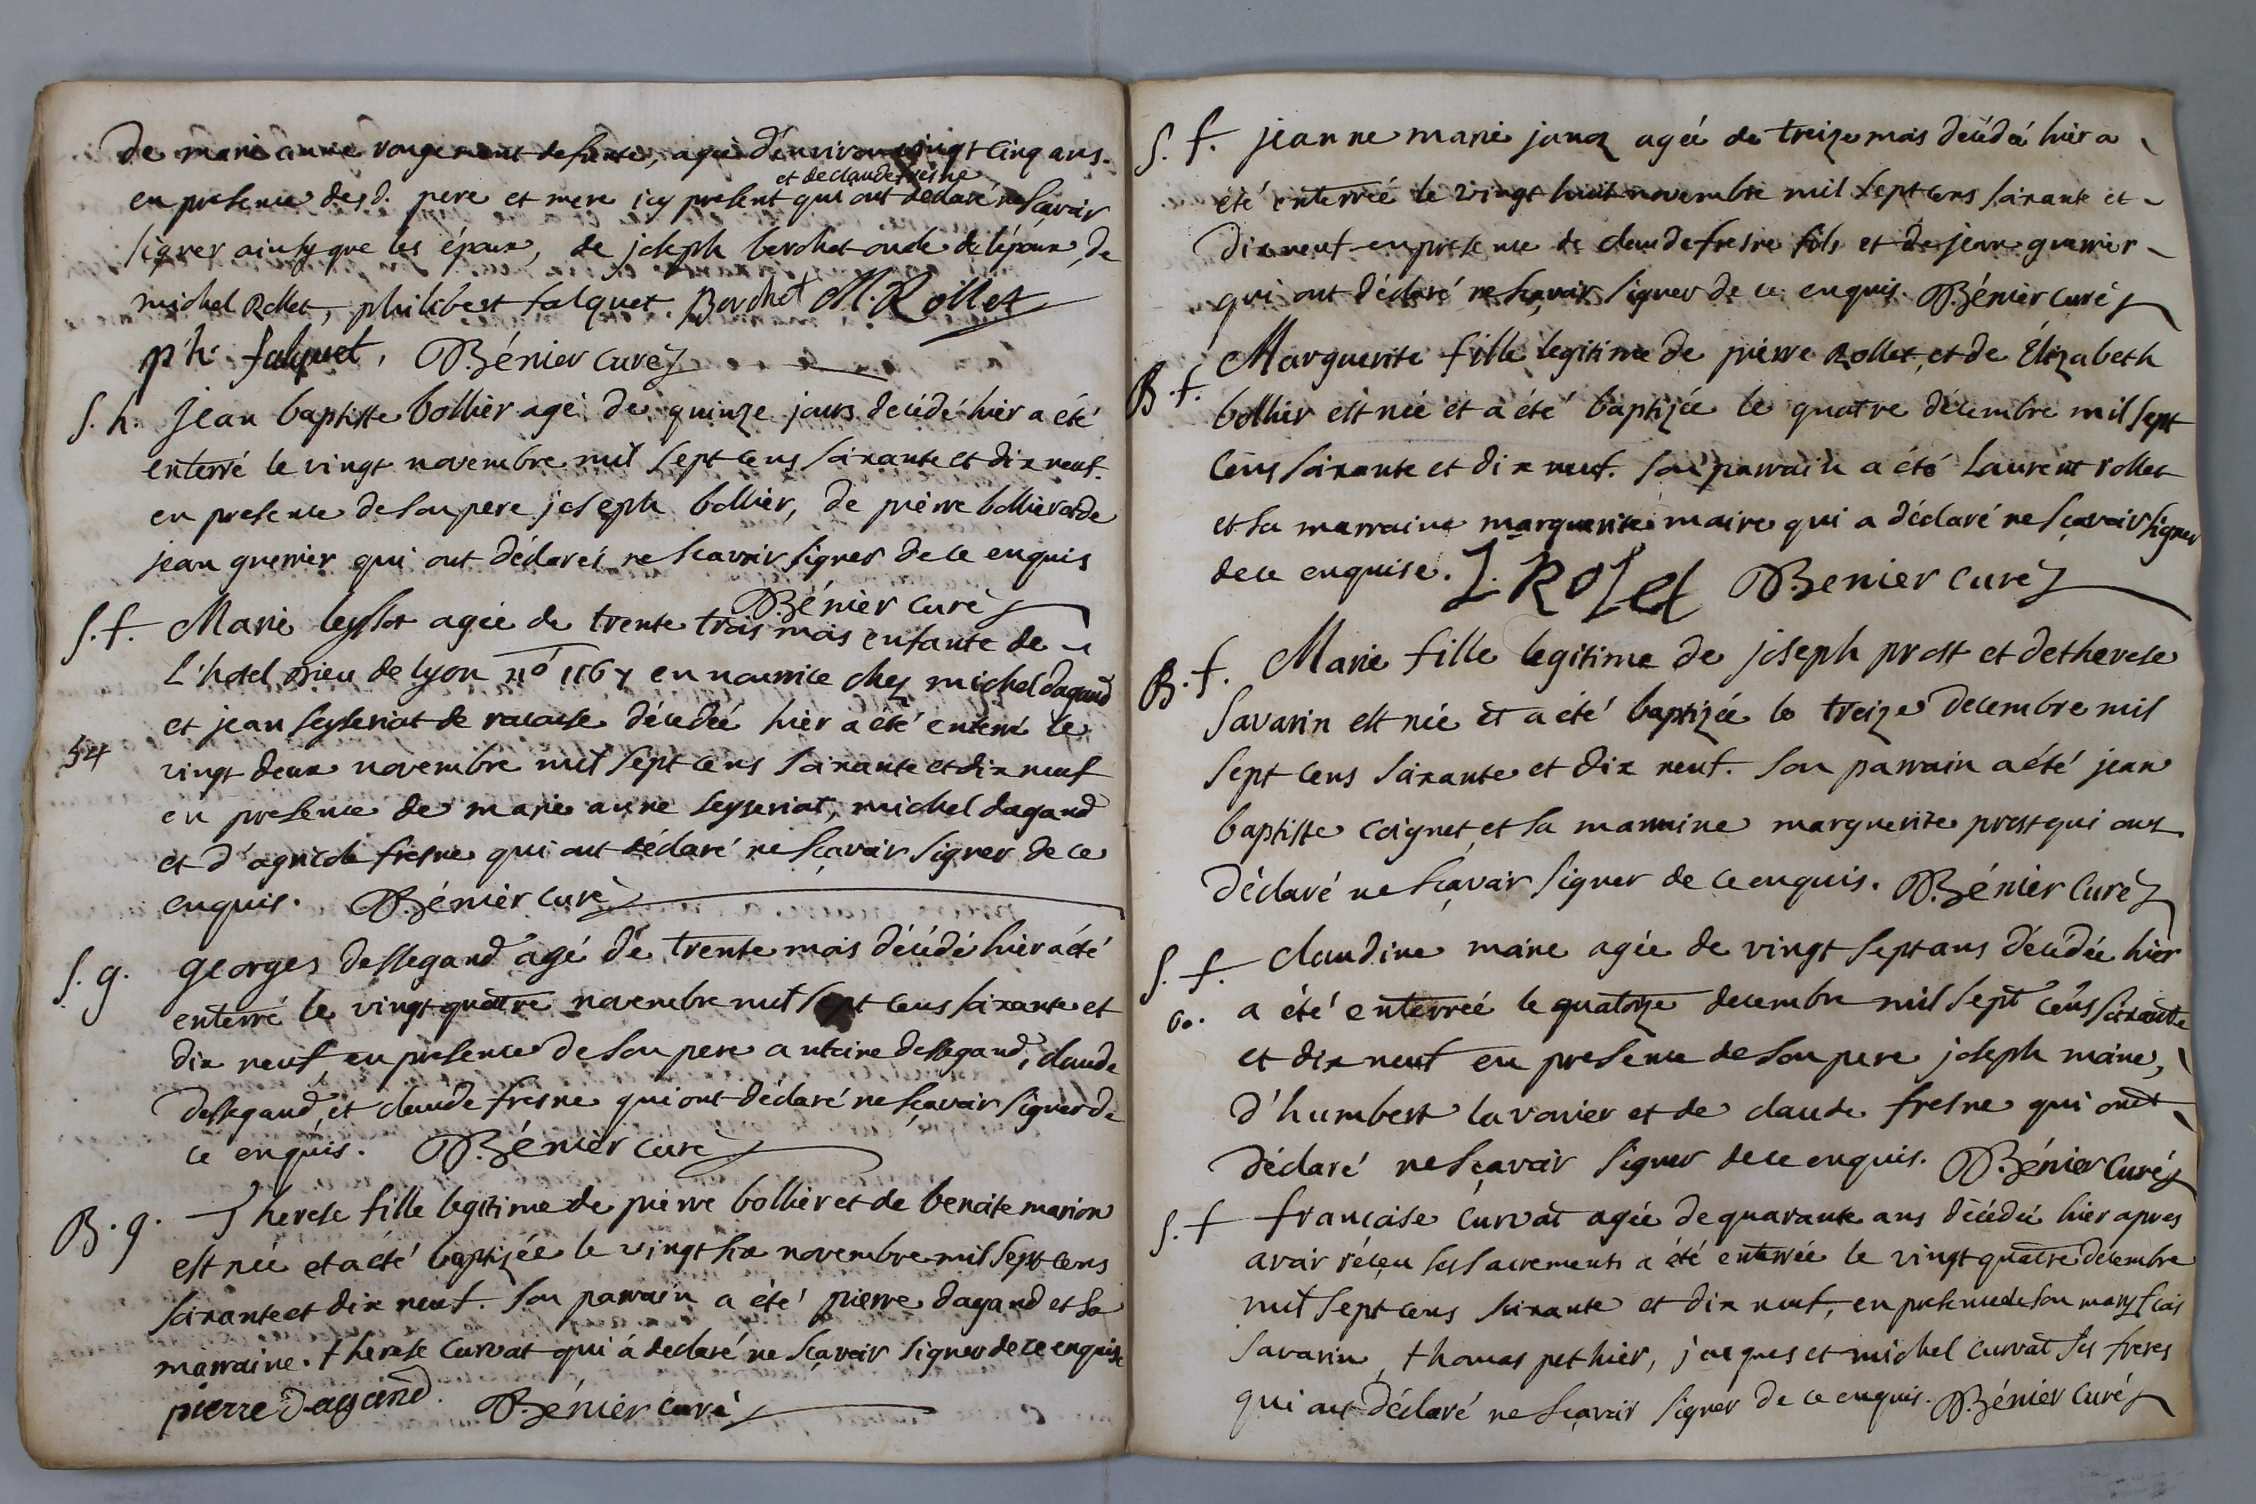 de marie anne rougemont defunte, agée d'environ vingt cinq ans.
et de claude fresne
en presence desd. pere et mere icy present qui ont déclaré ne scavoir
signer ainsy que les époux, de joseph berchet oncle de l'époux, de
michel Rollet, philibert falquet. Berchet M. Rollet
ph. falquet, Bénier curé
S. h. Jean baptiste bollier agé de quinze jours décédé hier a été
enterré le vingt novembre mil sept cens soixante et dix neuf.
en presence de son pere joseph bollier, de pierre bollier et de
jean guerrier qui ont déclarés ne scavoir signer de ce enquis
Bénier curé
S. f. Marie agée de trente trois mois enfante de
L'hotel Dieu de lyon no en nourrice chez michel dagand
et jean seyseriat de décédée hier a été enterré le
54
vingt deux novembre mil sept cens soixante et dix neuf
en presence de marie anne seyseriat, michel dagand
et d'agricole fresne qui ont déclaré ne sçavoir signer de ce
enquis. Bénier curé
S. g. georges dessegand agé de trente mois décédé hier a été
enterré le vingt quatre novembre mil sept cens soixante et
dix neuf, en presence de son pere antoine dessegand, claude
dessegand, et claude fresne qui ont déclaré ne sçavoir signer de
ce enquis. Bénier curé
B. g. Therese fille legitime de pierre bollier et de benoite marion
est née et a été baptizée le vingt six novembre mil sept cens
soixante et dix neuf. son parrain a été pierre dagand et sa
marraine. therese curvat qui a declaré ne sçavoir signer de ce enquise
pierre dagand. Bénier curé
S. f. jeanne marie janoz agée de treize mois décédée hier a
été enterrée le vingt huit novembre mil sept cens soixante et
dix neuf en presence de claude fresne fils et de jean guerrier
qui ont déclaré ne sçavoir signer de ce enquis. Bénier curé
Marguerite fille legitime de pierre Rollet, et de Élizabeth
B. f.
bollier est née et a été baptizée le quatre décembre mil sept
cens soixante et dix neuf. son parrain a été Laurent rollet
et sa marraine marguerite maire qui a déclaré ne sçavoir signer
de ce enquise. L. Rolet Benier curé
B. f. Marie fille legitime de joseph prost et de therese
Savarin est née et a été baptizée le treize decembre mil
sept cens soixante et dix neuf. son parrain a été jean
baptiste coignet, et sa marraine marguerite prost qui ont
déclaré ne sçavoir signer de ce enquis. Bénier curé
S. f. claudine maire agée de vingt sept ans décédée hier
60. a été enterrée le quatorze decembre mil sept cens soixante
et dix neuf en presence de son pere joseph maire,
d'humbert lavonier et de claude fresne qui ont
déclaré ne sçavoir signer de ce enquis. Bénier curé
S. f francaise curvat agée de quarante ans décédée hier apres
avoir réçeu ses sacrements a été enterrée le vingt quatre décembre
mil sept cens soixante et dix neuf, en presence de son mary fcois
Savarin, thomas pethier, jacques et michel curvat ses freres
qui ont déclaré ne sçavoir signer de ce enquis. Bénier curé